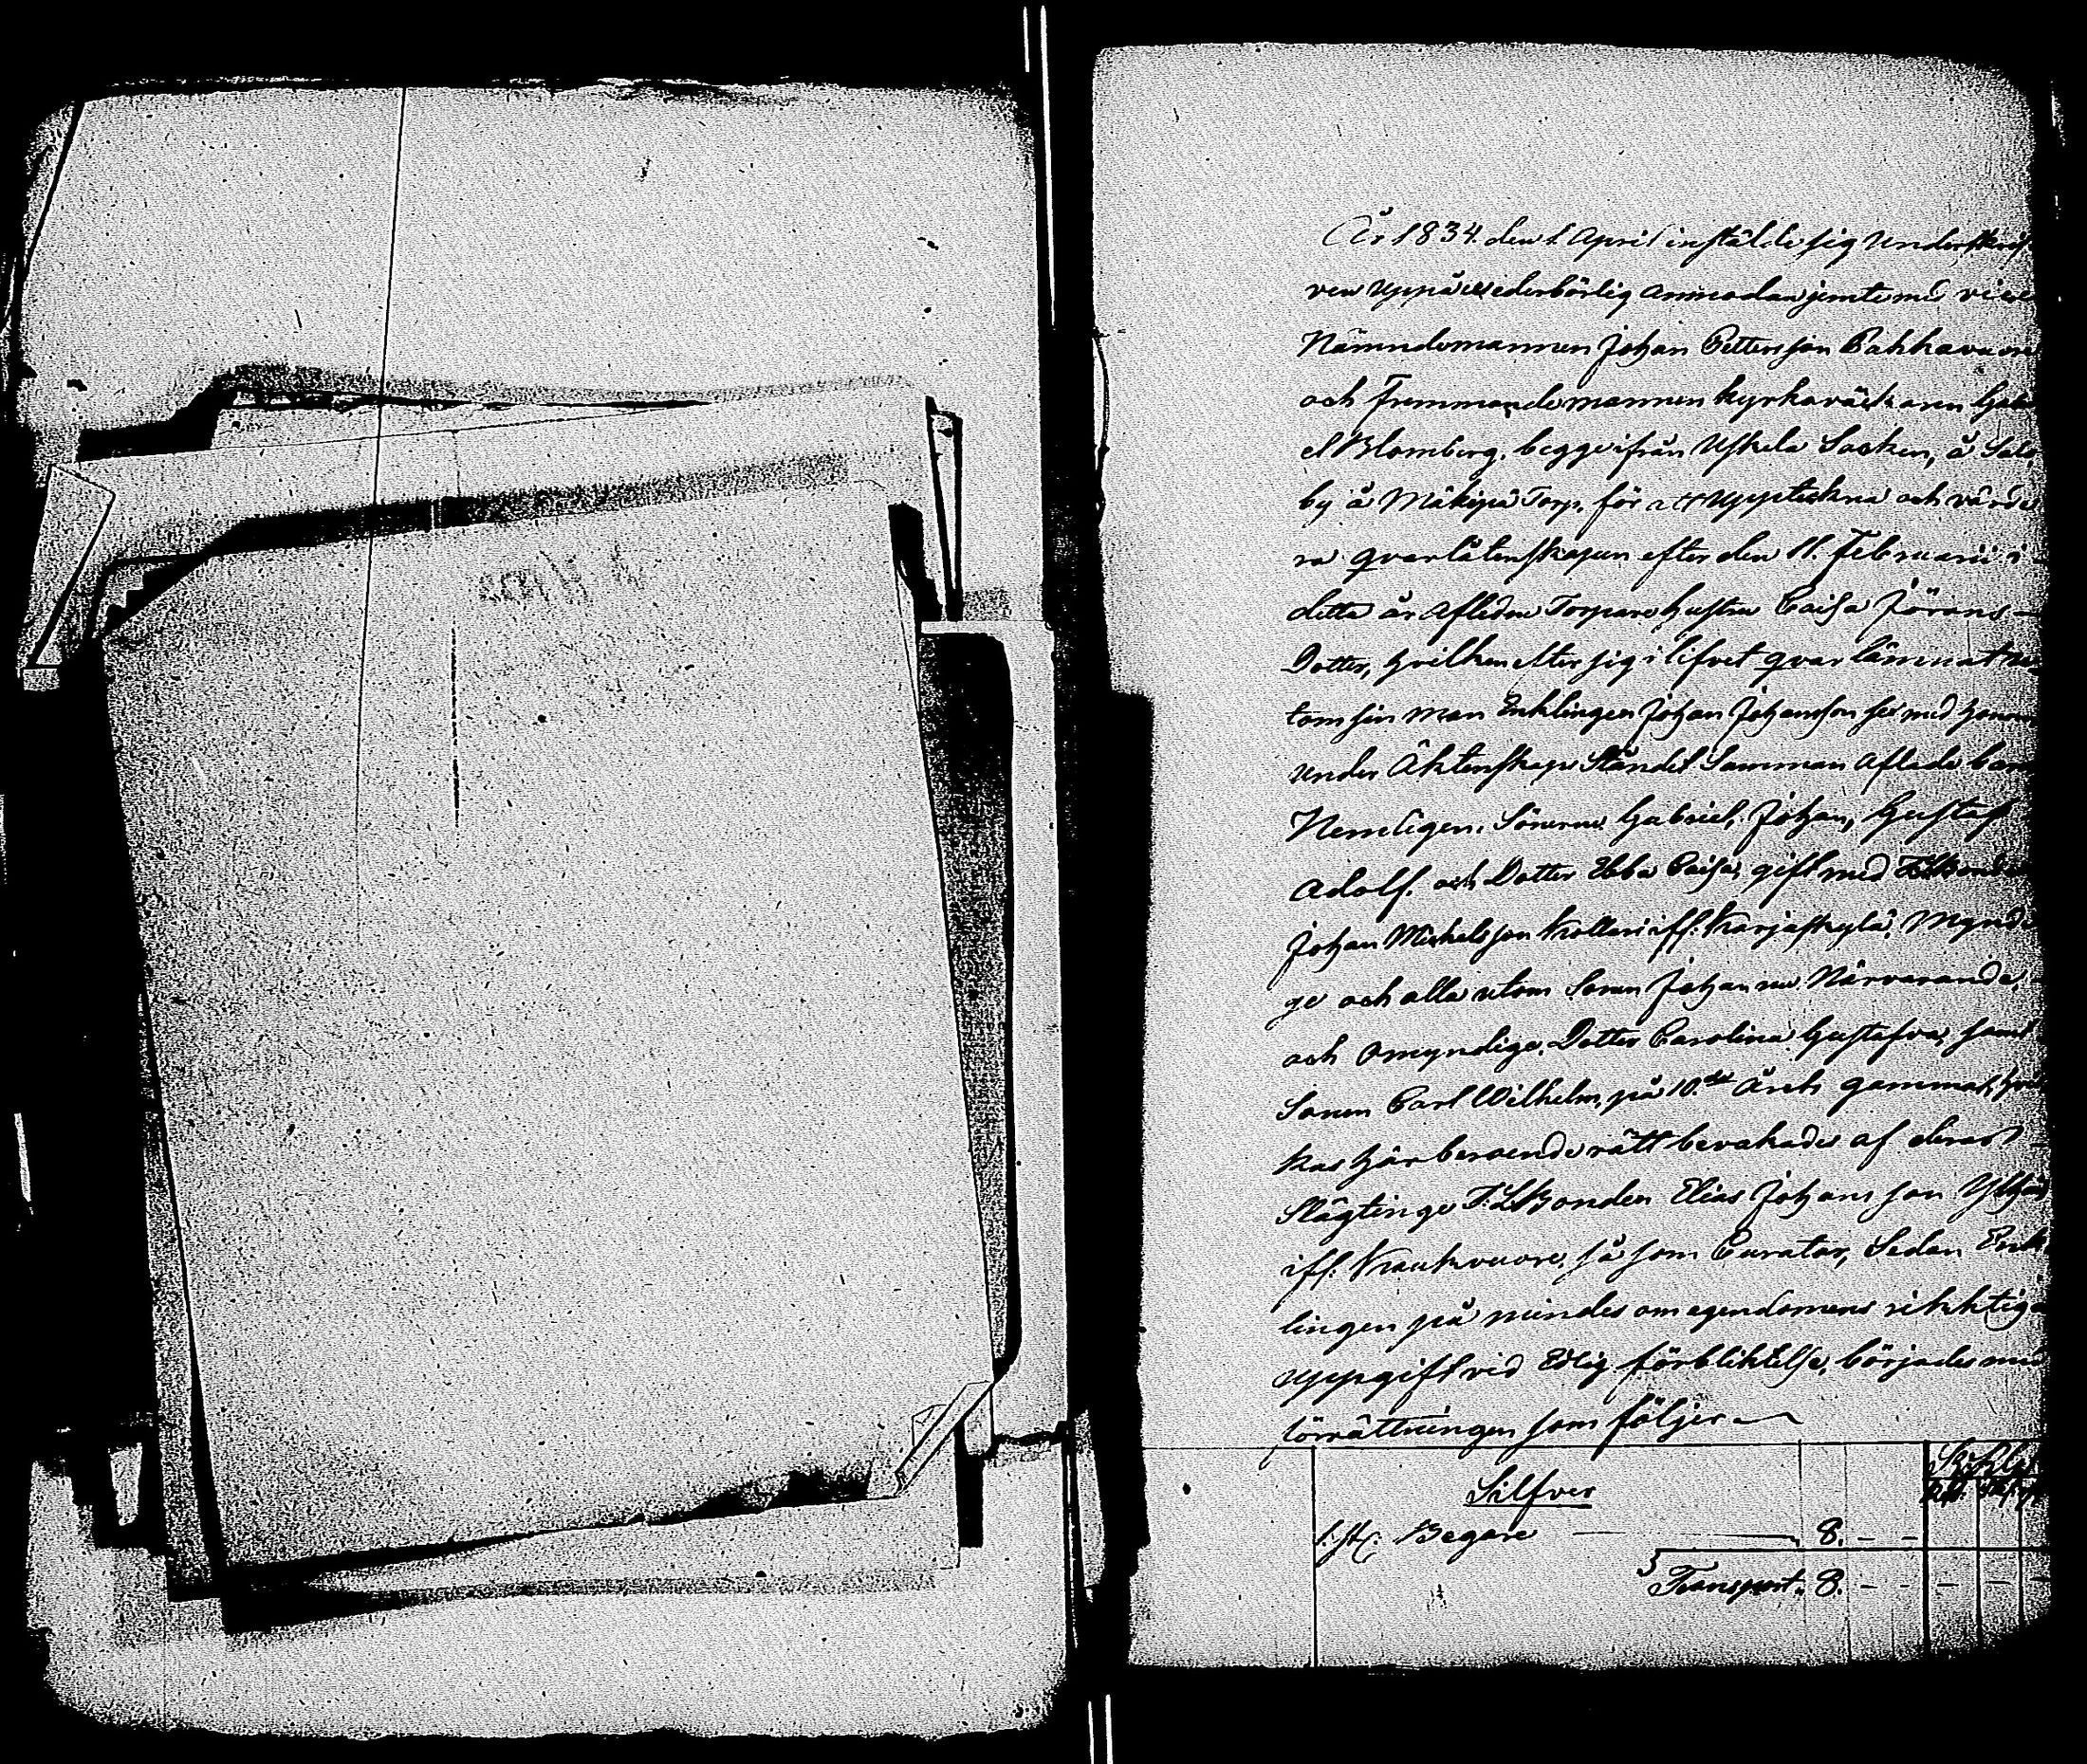 År 1834. den 1. April instälde sig Underskrif-
ven Uppå vederbörlig anmodan jemte med vice
Nämndemannen Johan Pettersson Pakkavuori
och Fremmandemannen kyrkoväcktaren Gabri
el Blomberg, begge ifrån Uskela Socken, å Salo
by å Mäkipä Torp, för att Uppteckna och värde
ra qvarlåtenskapen efter den 11. Februarii i
detta år afledne Torpare hustru Caisa Jörans-
Dotter, hvilken efter sig i lifvet qvarlämnat u
tom sin man Enklingen Johan Johansson sex med honom
under Äktenskaps Ståndet Samman aflade barn
Nemligen. Sönerne Gabriel, Johan, Gustaf
Adolf. och Dotter Ebba Caisa, gift med Bonden
Johan Michelsson Kollari iff. Karjaskylä, Myndi
ge och alla utom Sonen Johan nu Närvarande,
och Omyndige, Dotter Carolina Gustafva, samt
Sonen Carl Wilhelm, på 10.de Året gammal, hvil
kas härberoende rätt bevakades af deras
Slägtinge Bonden Elias Johansson
iff. Kaukvuori, så som Curator, Sedan Enk
lingen påmindes om egendomens rikktiga
Uppgift vid Edlig förbliktelse, börjades med
förrättningen som följer
Silfver
1. st. Begare 8. - -
Transport. 8. - - - - -